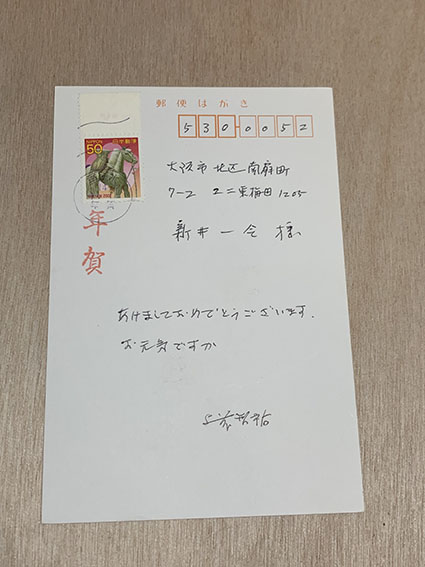 郵便はがき
530-0052
NIPPON
50
日本郵便
大阪市北区南扇町
7-2 ユニ東梅田1205
新井一令 様
年賀
あけましておめでとうございます.
お元気ですか